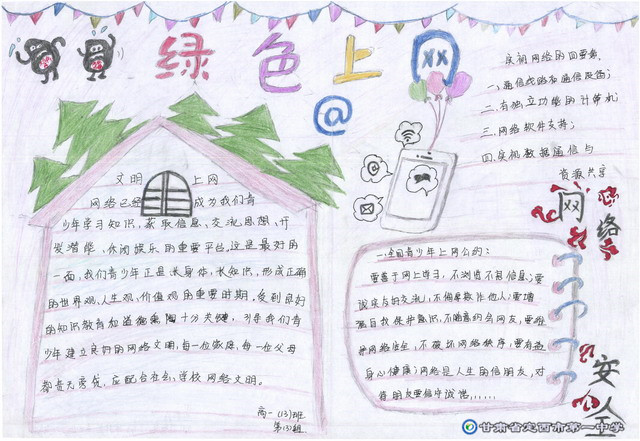 绿色上网
@
文明上网
网络已经成为我们青
少年学习知识，获取信息、交流思想、开
发潜能、休闲娱乐的重要平台。这是最好的
一面，我们青少年正是长身体，长知识，形成正确
的世界观、人生观、价值观的重要时期，受到良好
的知识教育和道德熏陶十分关键，引导我们青
少年建立良好的网络文明，每一位家庭，每一位父母
都责无旁贷，应配合社会，学校网络文明。
高一(13)班
第(3)组
实现网络的四要素
一、通信线路和通信设备；
二、有独立功能的计算机；
三、网络软件支持；
四、实现数据通信与
资源共享
网络
安全
一、全国青少年上网公约：
要善于网上学习，不浏览不良信息；要
诚实友好交流，不侮辱欺诈他人；要增
强自我保护意识，不随意约会网友；要维
护网络安全，不破坏网络秩序；要有益
身心健康；网络是人生的信朋友，对
待朋友要信守诚信......
甘肃省定西市第一中学